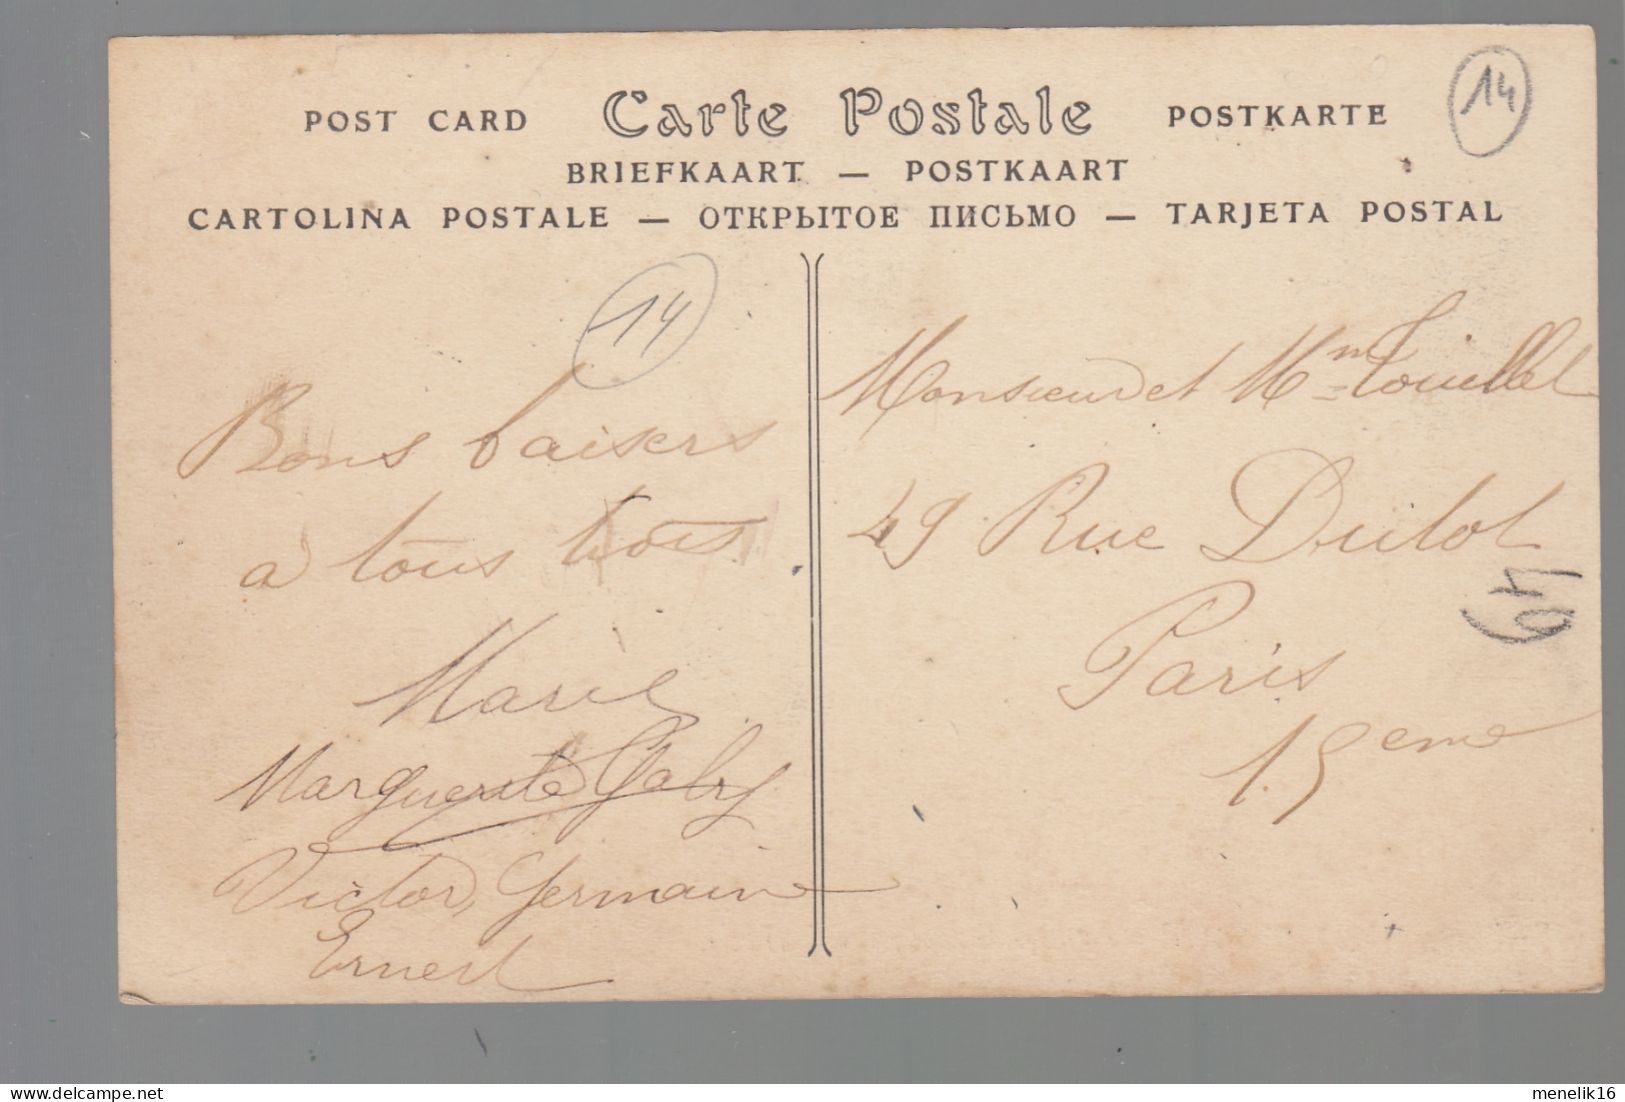 POST CARD Carte Postale POSTKARTE
14
BRIEFKAART — POSTKAART
CARTOLINA POSTALE — ОТКРЫТОЕ ПИСЬМО — TARJETA POSTAL
14
Bons baisers
a tous trois
Marie
Marguerite Gaby
Victor, Germaine
Ernest
Monsieur et Mme
49 Rue Dutot
Paris
15eme
delcampe.net
menelik16